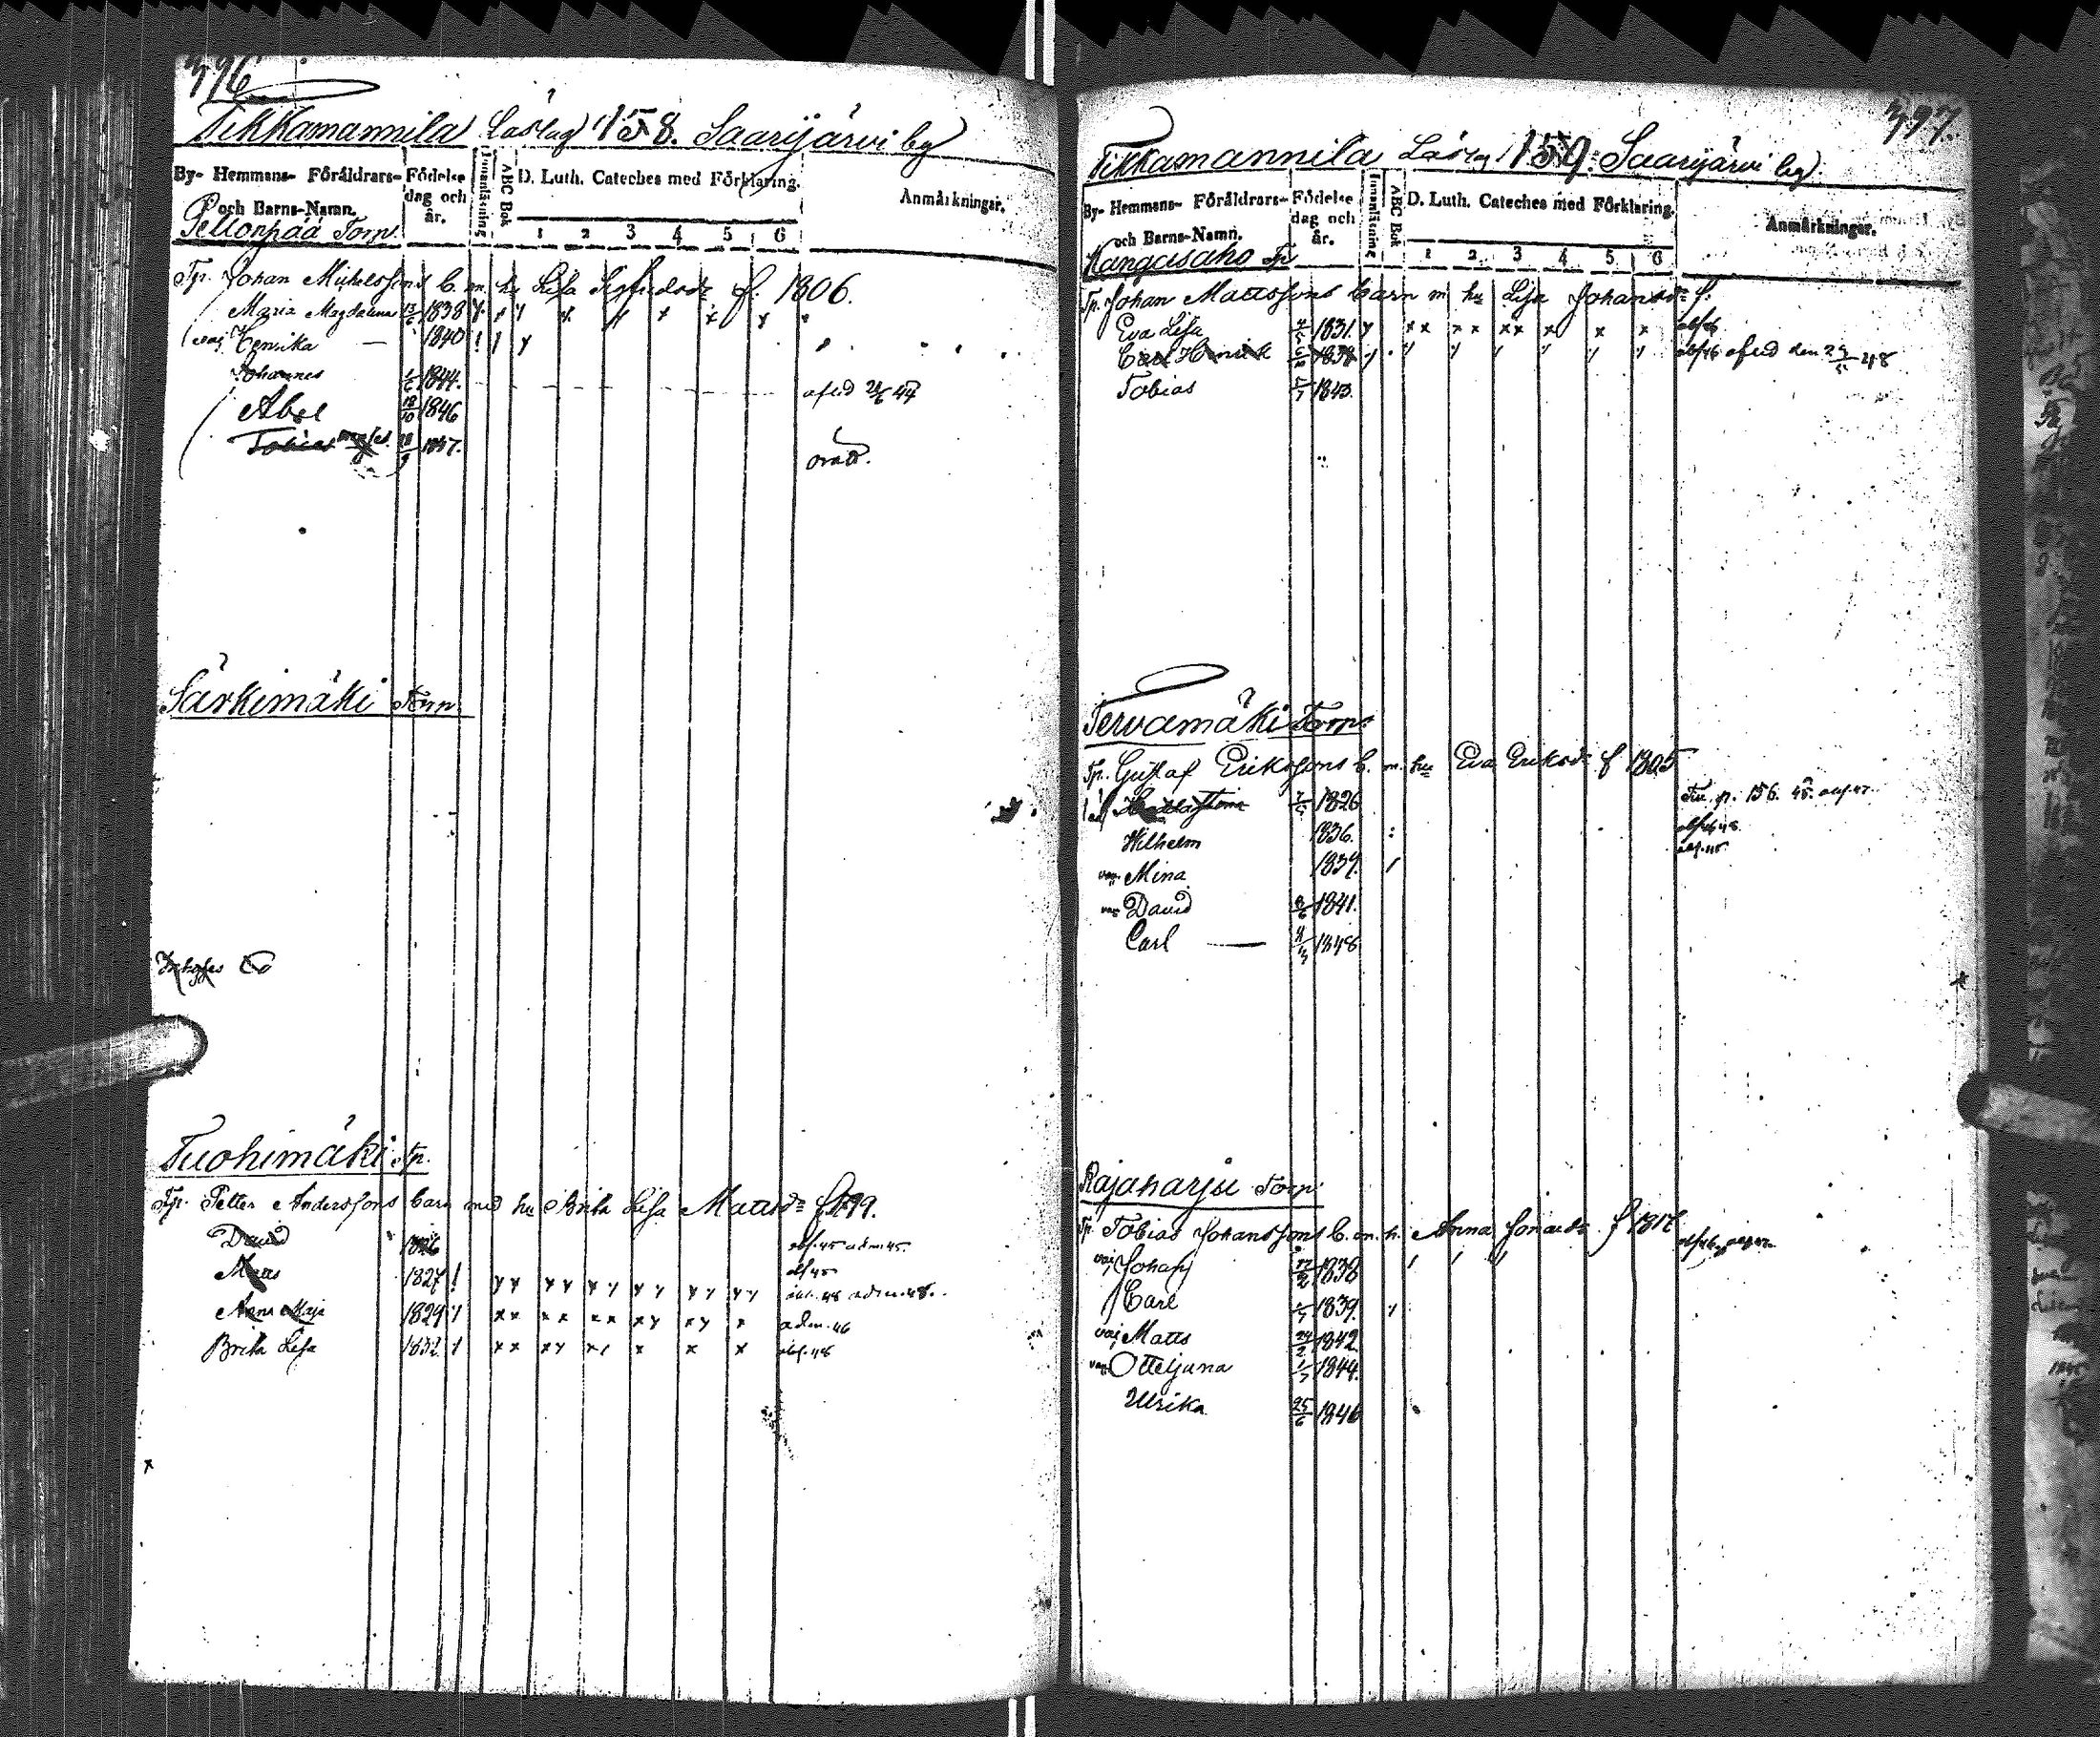 396
Tikkamannila Läslag 158. Saarijärvi by
By- Hemmans- Föräldrars- och Barns-Namn.
Födelse dag och år.
Innanläsning
ABC Bok
D. Luth. Cateches med Förklaring.
1 2 3 4 5 6
Anmärkningar.
Pellonpää Torp.
Tp. Johan Mickelssons b. m. hu Lisa f. 1806.
Maria Magdalena 13/6 1838
vac; Henrika — 1840
Johannes 1/6 1844. afled 21/6 44
Abel 18/10 1846
Tobias 28/9 1847.
Särkimäki Torp
Tuohimäki Tp.
Tp. Petter Anderssons barn med hu Brita Lisa Mattsdr f. 1799.
David 1826 abs. 45 adm. 45.
Matts 1827 abs 45
Anna Maja 1829 adm. 46
Brita Lisa 1832 abs. 48
397.
Tikkamannila Läslag 159. Saarijärvi by.
By- Hemmans- Föräldrars- och Barns-Namn.
Födelse dag och år.
Innanläsning
ABC Bok
D. Luth. Cateches med Förklaring.
1 2 3 4 5 6
Anmärkningar.
Kangasaho Tp
Tp. Johan Mattssons barn m hu Lisa Johansdr f.
Eva Lisa 1831.
Carl Henrik 1838 afled den 48
Tobias 1843.
Tervamäki Torp.
Tp. Gustaf Erikssons b. m. hu Eva Eriksdr f 1805
1826 p. 156. 45.
Wilhelm 1836.
Mina 1839.
David 8/6 1841.
Carl — 1848
Rajaharju Torp
Tp. Tobias Johanssons b. m. h. Anna Jonasdr f
Johan 1838
Carl 1839.
Matts 24/2 1842
Otteljana 1/7 1844.
Ulrika 25/6 1846